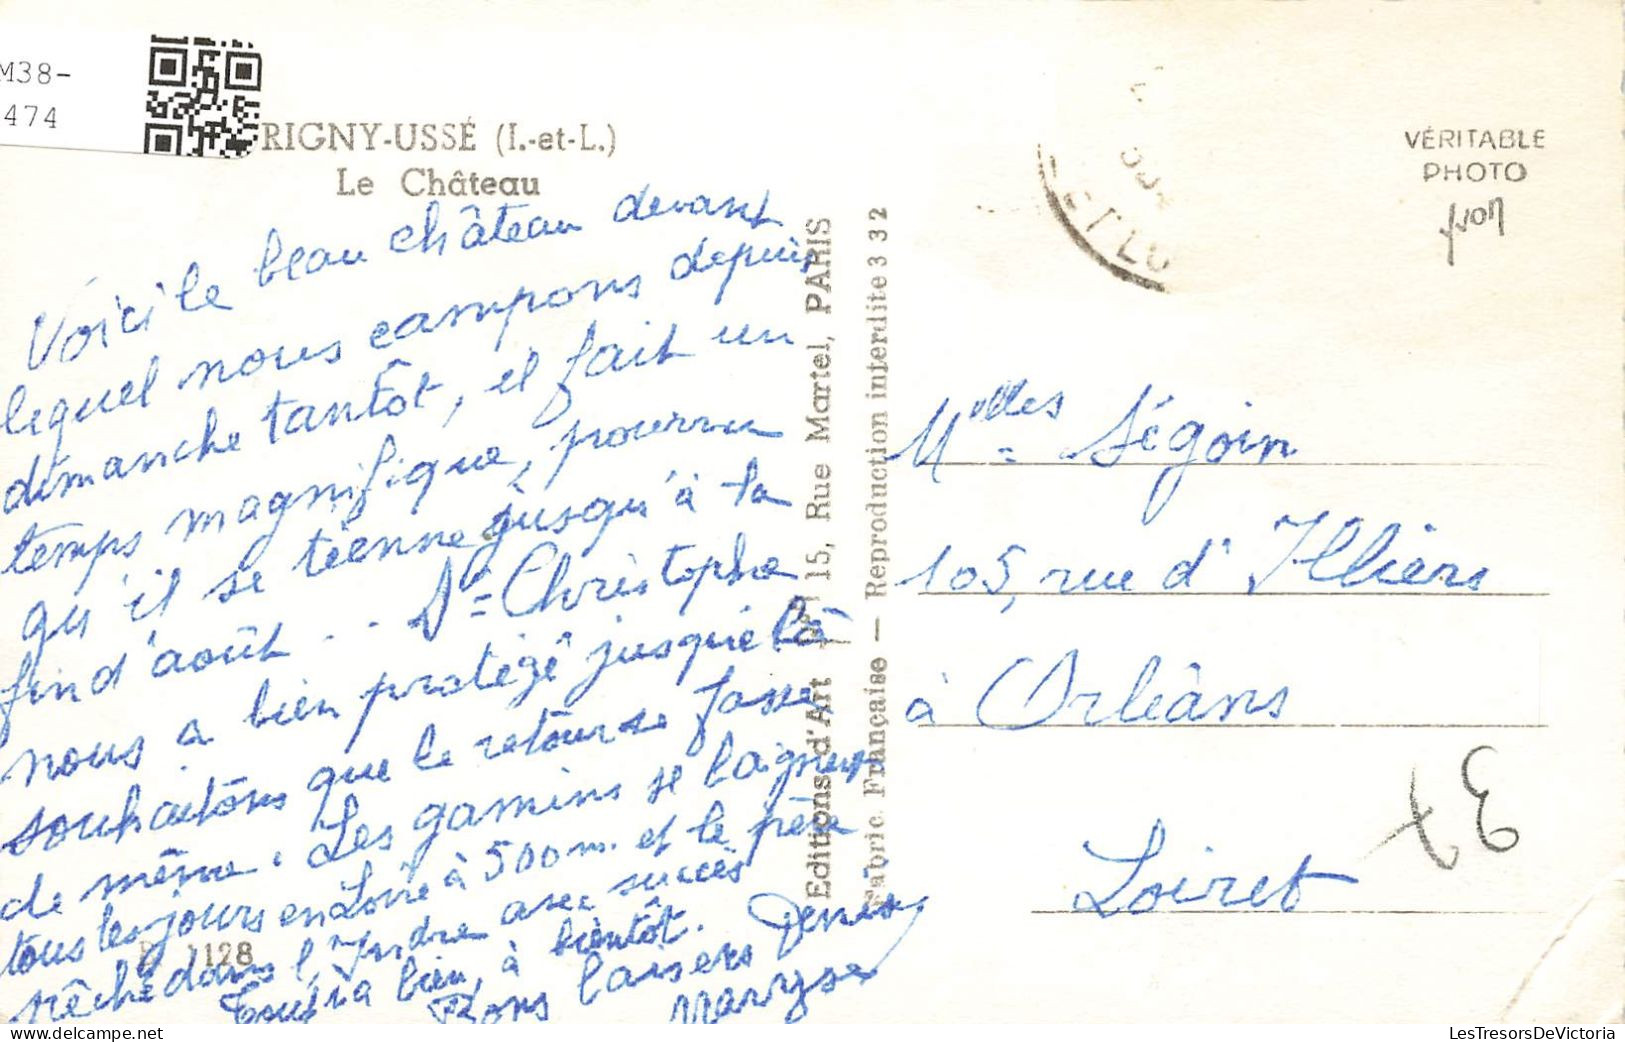 M38-
474
RIGNY-USSÉ (I.-et-L.)
Le Château
Voici le beau château devant
lequel nous campons depuis
dimanche tantôt, il fait un
temps magnifique, pourvu
qu'il se tienne jusqu'à la
fin d'août... St= Christophe
nous a bien protégé jusque là
souhaitons que le retour se fasse
de même. Les gamins se baignent
tous les jours en Loire à 500 m. et le père
pêche dans l'Indre avec succès
Tout va bien, à bientôt.
Bons baisers Denise
Maryse
P 1128
Editions d'Art 15, Rue Martel, PARIS
Fabric. Française — Reproduction interdite 3 32
VÉRITABLE
PHOTO
yvon
Melles= Ségoin
105, rue d'Illiers
à Orléans
Loiret
ET-LO
LesTresorsDeVictoria